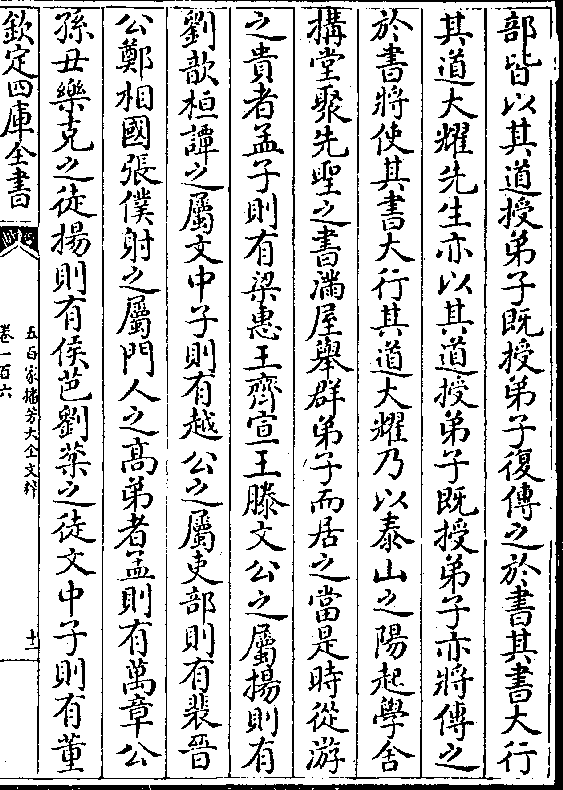 部皆以其道授弟子既授弟子復傳之於書其書大行
其道大耀先生亦以其道授弟子既授弟子亦將傳之
於書將使其書大行其道大耀乃以泰山之陽起學舍
搆堂聚先聖之書滿屋舉群弟子而居之當是時從游
之貴者孟子則有梁惠王齊宣王滕文公之屬揚則有
劉歆桓譚之屬文中子則有越公之屬吏部則有裴晉
公鄭相國張僕射之屬門人之高弟者孟則有萬章公
孫丑樂克之徒揚則有侯芭劉棻之徒文中子則有董
欽定四庫全書
五百家播芳大全文粹
卷一百六
十一